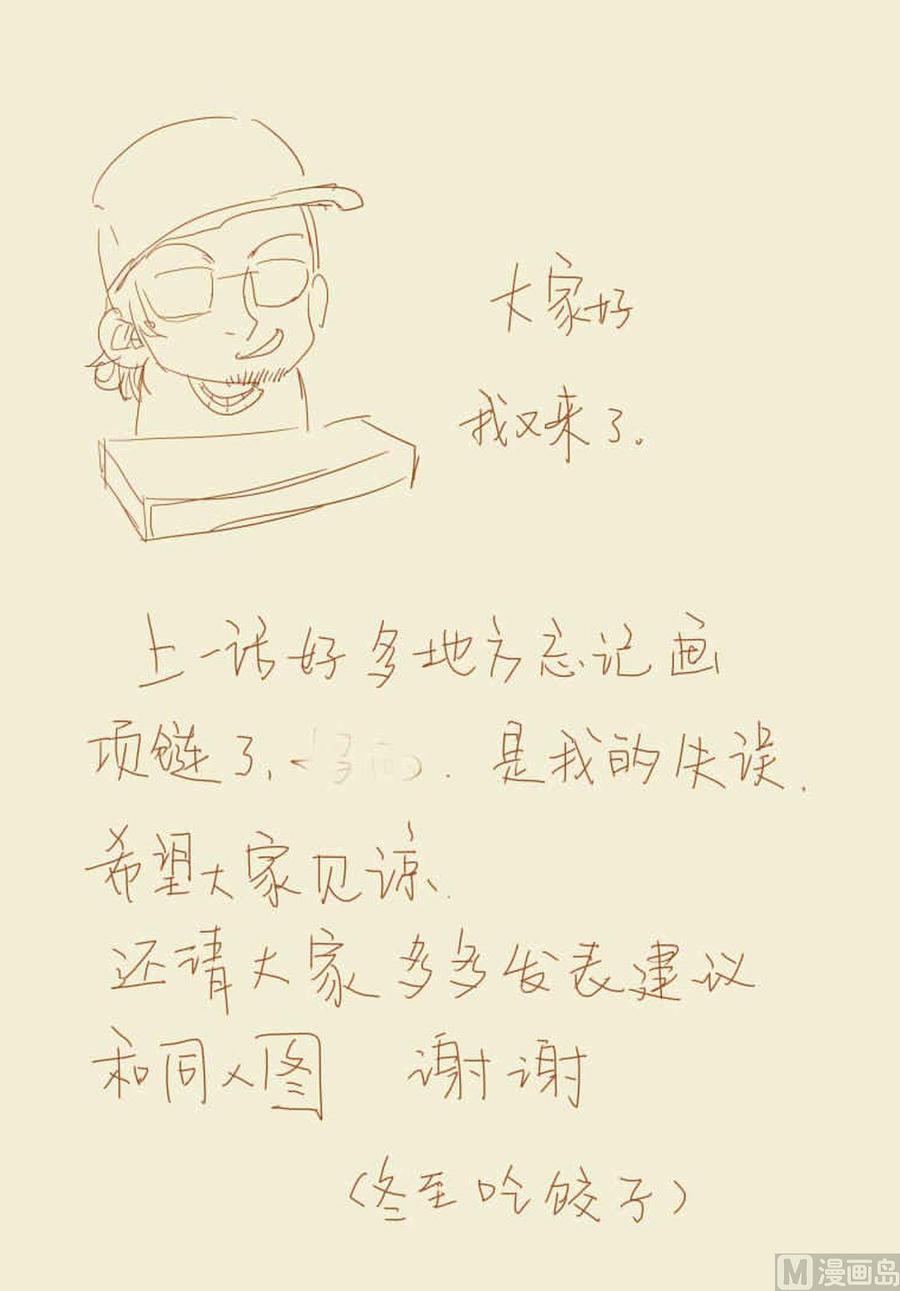 大家好
我又来了。
上一话好多地方忘记画
项链了、是我的失误.
希望大家见谅、
还请大家多多发表建议
和同人图 谢谢
(冬至吃饺子)
M 漫画岛